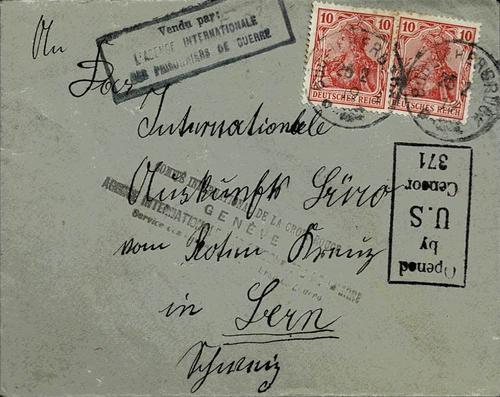 Vendu par:
L'AGENCE INTERNATIONALE
DES PRISONNIERS DE GUERRE
10 10
DEUTSCHES REICH
10 10
DEUTSCHES REICH
An
Das
Internationale
Auskunfts Büro
COMITÉ INTERNATIONAL DE LA CROIX-ROUGE
GENÈVE
AGENCE INTERNATIONALE
Service
vom Roten Kreuz
in Bern
Schweiz
Opened
by
U.S
Censor
371